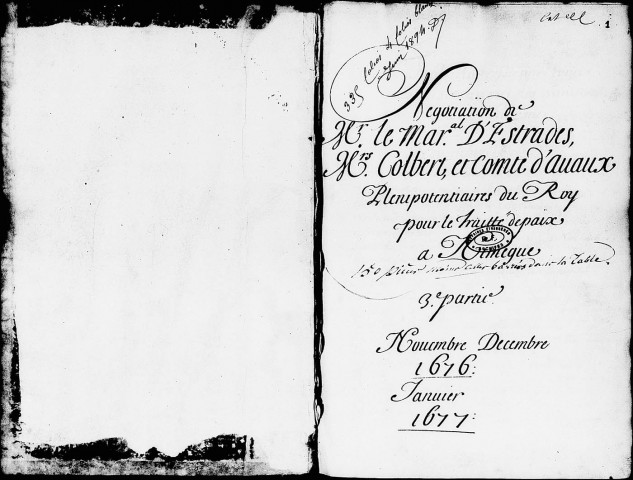 1
335 folios
Negotiation de
Mr. le Mar.al D'Estrades,
Mrs. Colbert, et Comte d'Auaux
Plenipotentiaires du Roy
pour le Traitté de paix
a Nimegue
dans la Table.
3.e partie
Nouembre Decembre
1676:
Januier
1677: